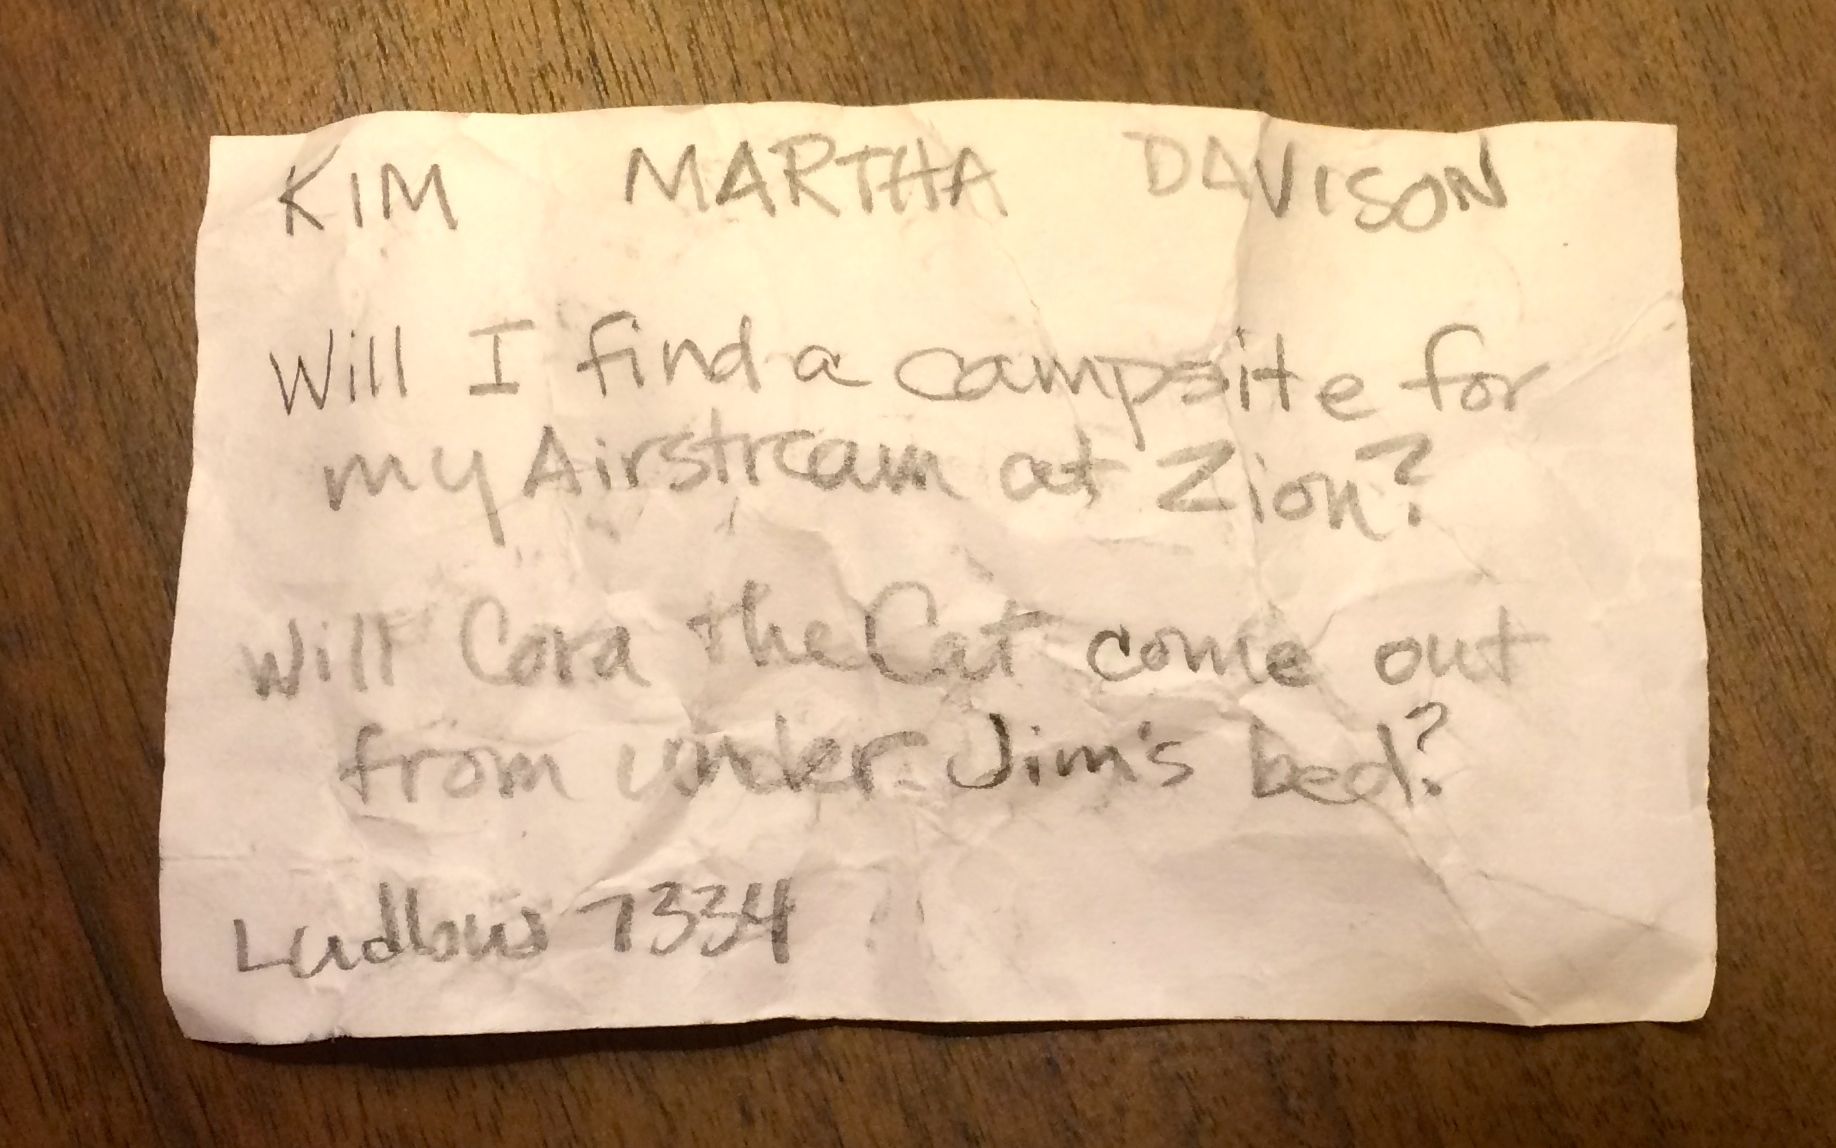 KIM MARTHA DAVISON
Will I find a campsite for
my Airstream at Zion?
Will Cora the Cat come out
from under Jim's bed?
Ludlow 7334